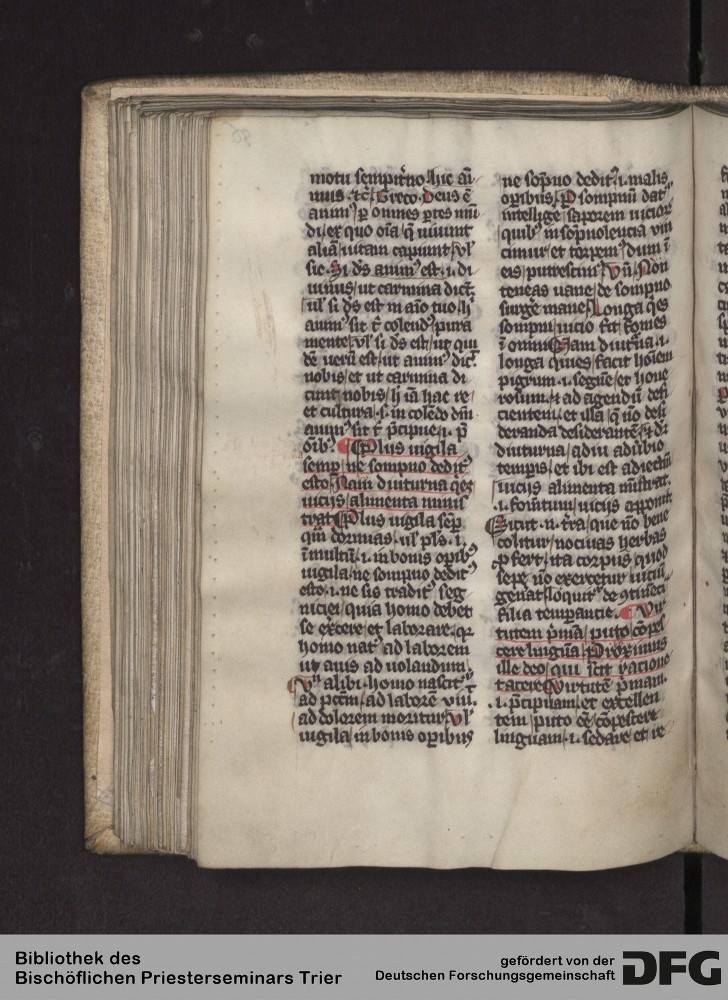 motu sempit̾no hic aĩ
mus ⁊c̃ Greco Deus ẽ
anim᷒ ꝑ omnes ꝑtes mũ
di ex quo oĩa q̃ uiuunt
aliã uitam capiunt Vl̾
sic Si ds̃ anim᷒ est .i. di
uinus ut carmina dict̃
ul̾ si ds̃ est in aĩo tuo h̾
anim᷒ sit t̾ colend᷒ pura
mente Vl̾ si ds̃ est ut qui
dẽ uerũ est ut anim᷒ dic̃
nobis et ut carmina di
cunt nobis h̾ iã hac re
et cultura .s. in colẽdo dm̃
anim᷒ sit t̾ p̃cipue .i. p̃
oĩb᷒ Plus uigila
semp̱ ne sompno dedit᷒
esto Nam diuturna q̾es
uicijs alimenta minis
trat Plus uigila sep̱
qm̃ dormias ul̾ pl᷒s .i.
ĩmultũ .i. in bonis opib᷒
uigila ne sompno dedit᷒
esto .i. ne sis tradit᷒ seg
niciei quia homo debet
se excere et laborare qr̃
homo nat᷒ ad laborem
ut auis ad uolandum
Vñ alibi homo nascit̾
ad pctm̃ ad laborẽ viu.
ad dolorem moritur Vl̾
uigila in bonis opib᷒
ne sop̃no dedit᷒ .i. malis
opibus P sompnũ dat̾
intellige saporem uicior̾
quib᷒ in sop̃nolencia vin
cimur et torpem᷒ dum ĩ
eis putrescim᷒ Vñ Non
teneas uane de sompno
surge mane Longa q̾es
sompni uicio fit fomes
ĩ omni Nam diut̾na .i.
longa quies facit hoĩem
pigrum .i. segnẽ et hone
rosum ⁊ ad agendũ defi
cientem et illa q̃ nõ desi
deranda desiderantẽ ⁊ dr̃
diuturna q̾diu aduerbio
tempis et ibi est adiectiũ
uicijs alimenta mĩstrat
.i. fomitum uicijs apponit
Sicut .n. tr̃a que nõ bene
colitur nociuas herbas
ꝓfert ita corpus quod
sepe nõ exercetur uiciũ
gen̾at loquit̾ de
filia temp̱antie Vir
tutem p̾mã puto cõpes
cere linguã Proximus
ille deo qui scit racione
tacere Virtutẽ p̾mam
.i. p̃cipuam et excellen
tem puto eẽ cõpescere
linguam .i. sedare et re
Bibliothek des
Bischöflichen Priesterseminars Trier
gefördert von der
Deutschen Forschungsgemeinschaft
DFG